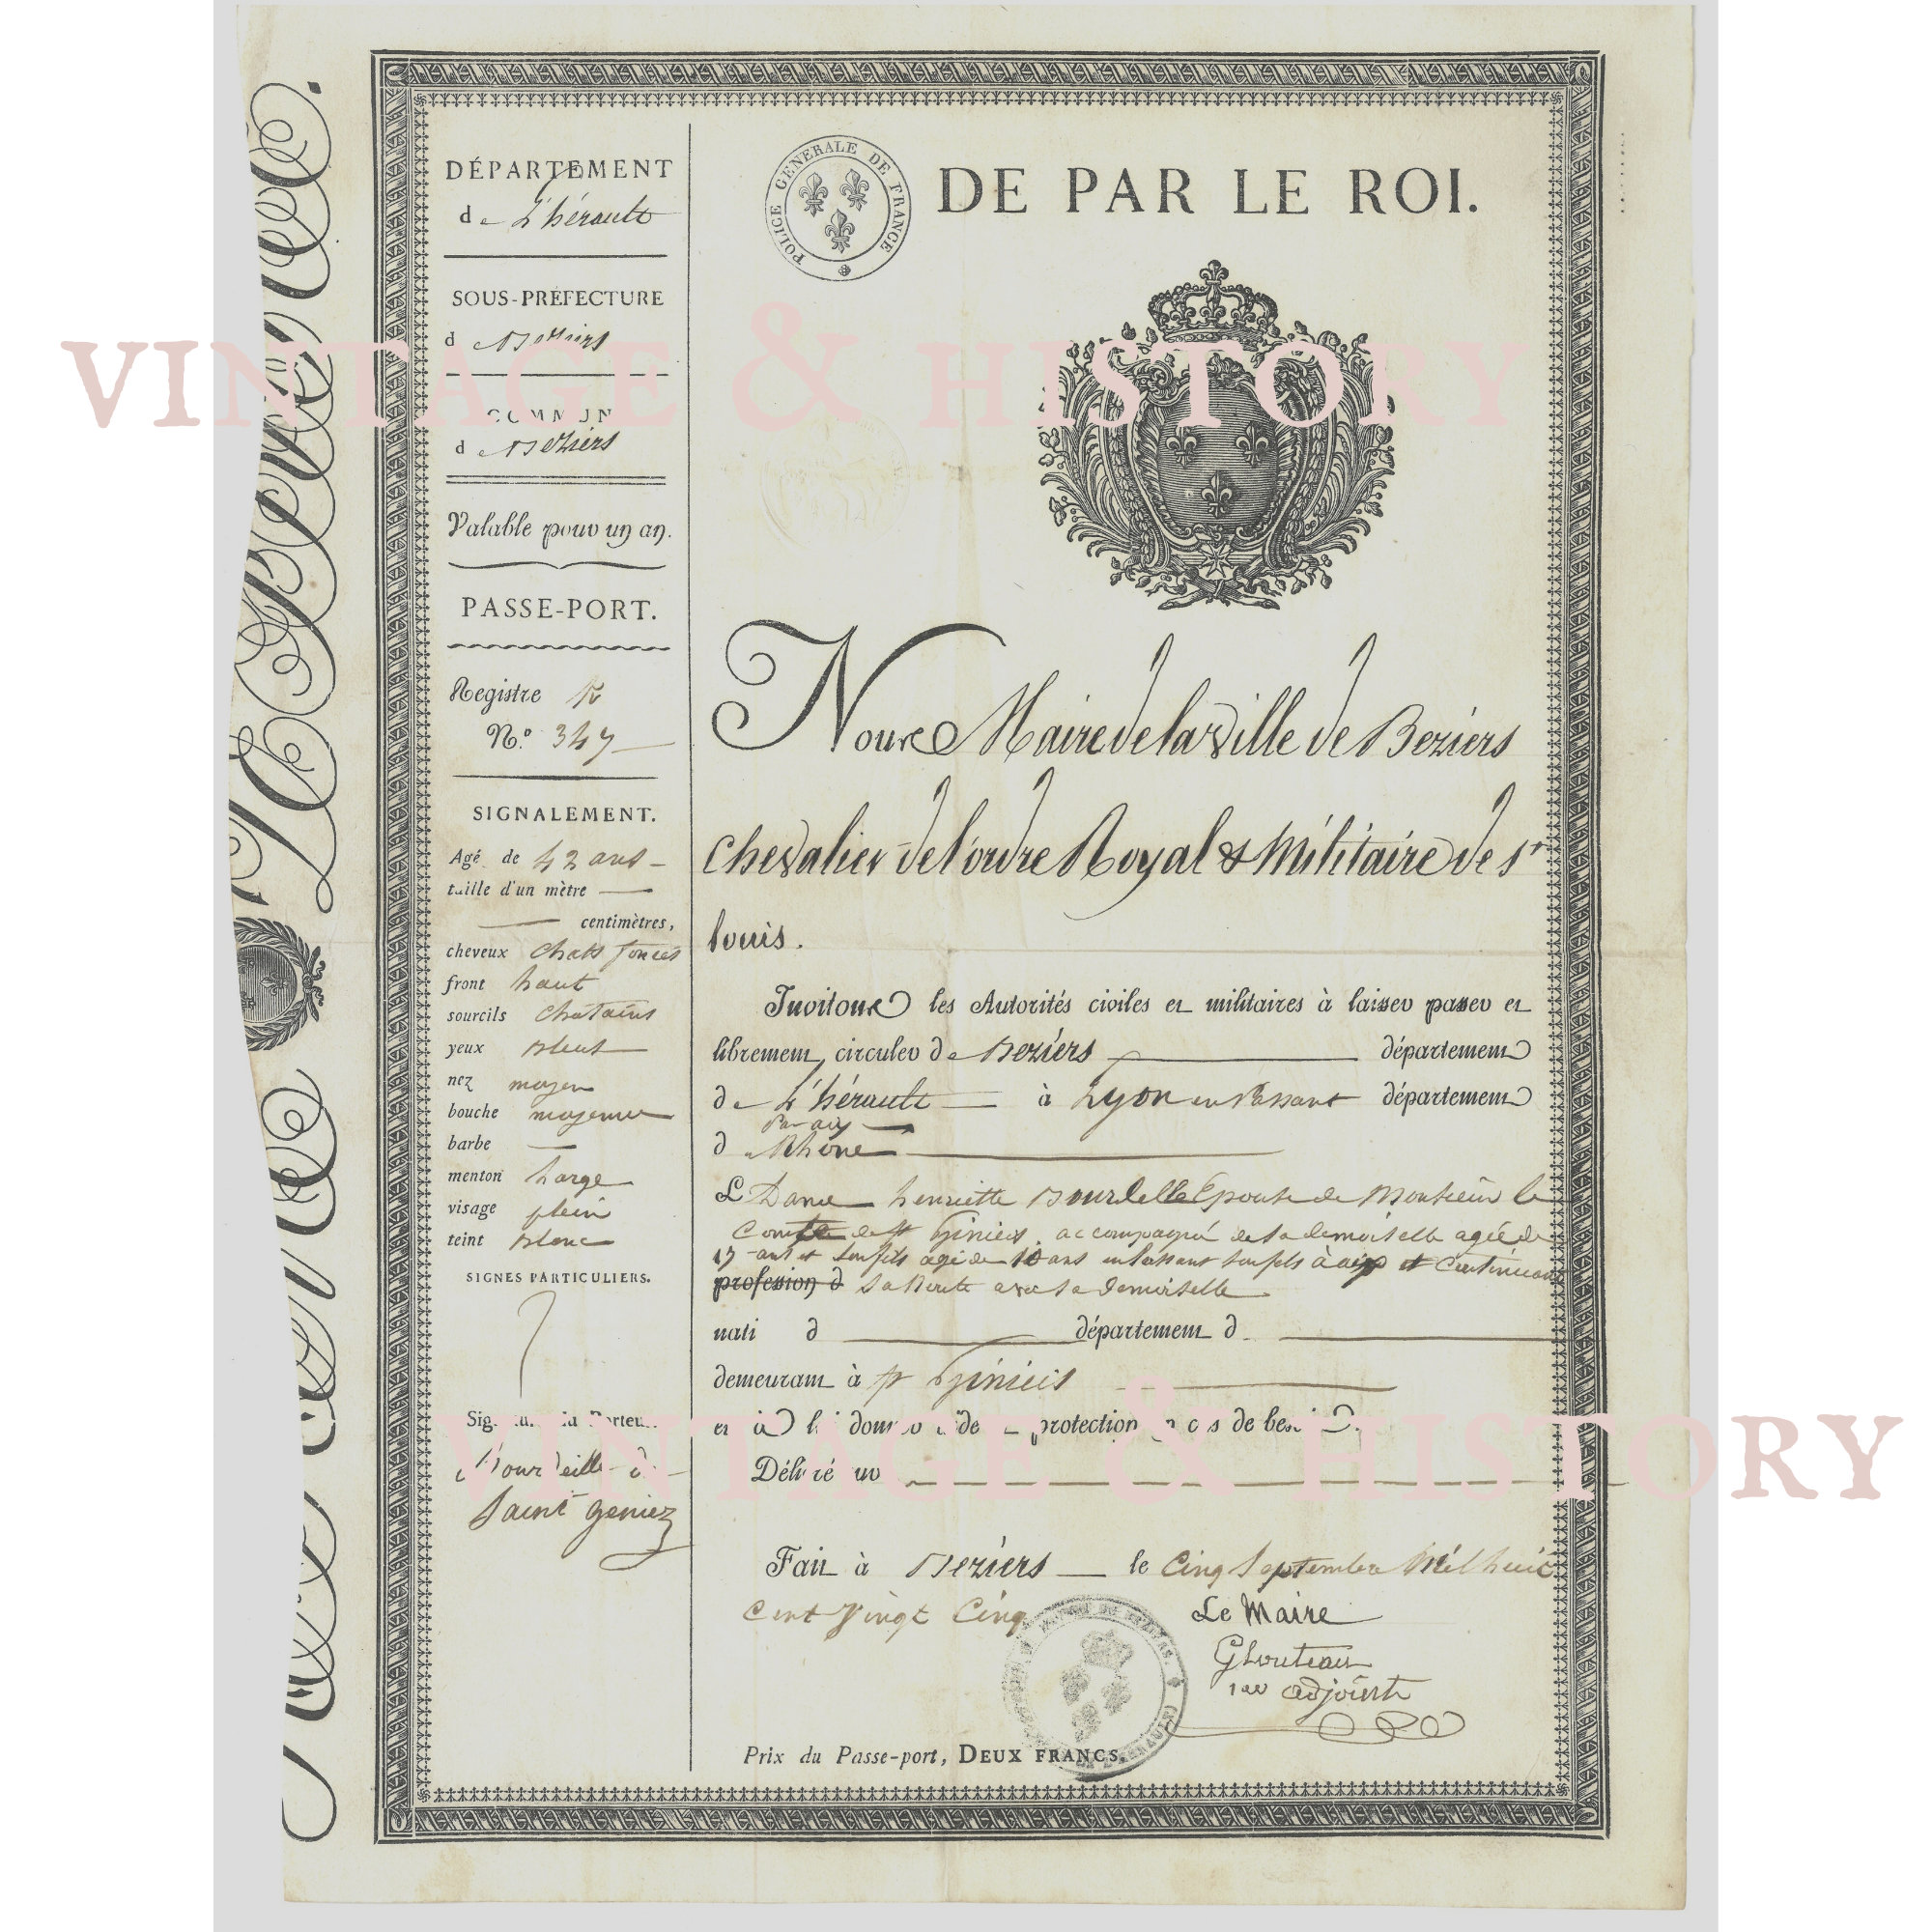 DÉPARTEMENT
de L'hérault
SOUS-PRÉFECTURE
de Beziers
COMMUN
de Beziers
Valable pour un an.
PASSE-PORT.
Registre
N.º 347
SIGNALEMENT.
Agé de 42 ans
taille d'un mètre
centimètres,
cheveux chats foncés
front haut
sourcils chatains
yeux bleus
nez moyen
bouche moyenne
barbe
menton large
visage plein
teint blanc
SIGNES PARTICULIERS.
Signature du Porteur
Bourdeille de
Saint geniez
POLICE GENERALE DE FRANCE
DE PAR LE ROI.
Nous Maire de la Ville de Beziers
Chevalier de l'ordre Royal & Militaire de St
louis.
Invitons les Autorités civiles et militaires à laisser passer et
librement circuler de Beziers département
de L'hérault à Lyon en Passant département
Par aix
de Rhône
L Dame henriette Bourdeille Epouse de Monsieur le
Comte de St Ginieis. accompagné de sa demoiselle agée de
17 ans et son fils agé de 10 ans en laissant son fils à aix et Continuant
profession d sa Route avec sa demoiselle
nati d département d
demeurant à St Ginieis
et à lui donner aide et protection en cas de besoin.
Délivré sur
Fait à Beziers le Cinq Septembre Mil huit
Cent Vingt Cinq
Le Maire
1er adjoint
Prix du Passe-port, DEUX FRANCS.
VINTAGE & HISTORY
VINTAGE & HISTORY